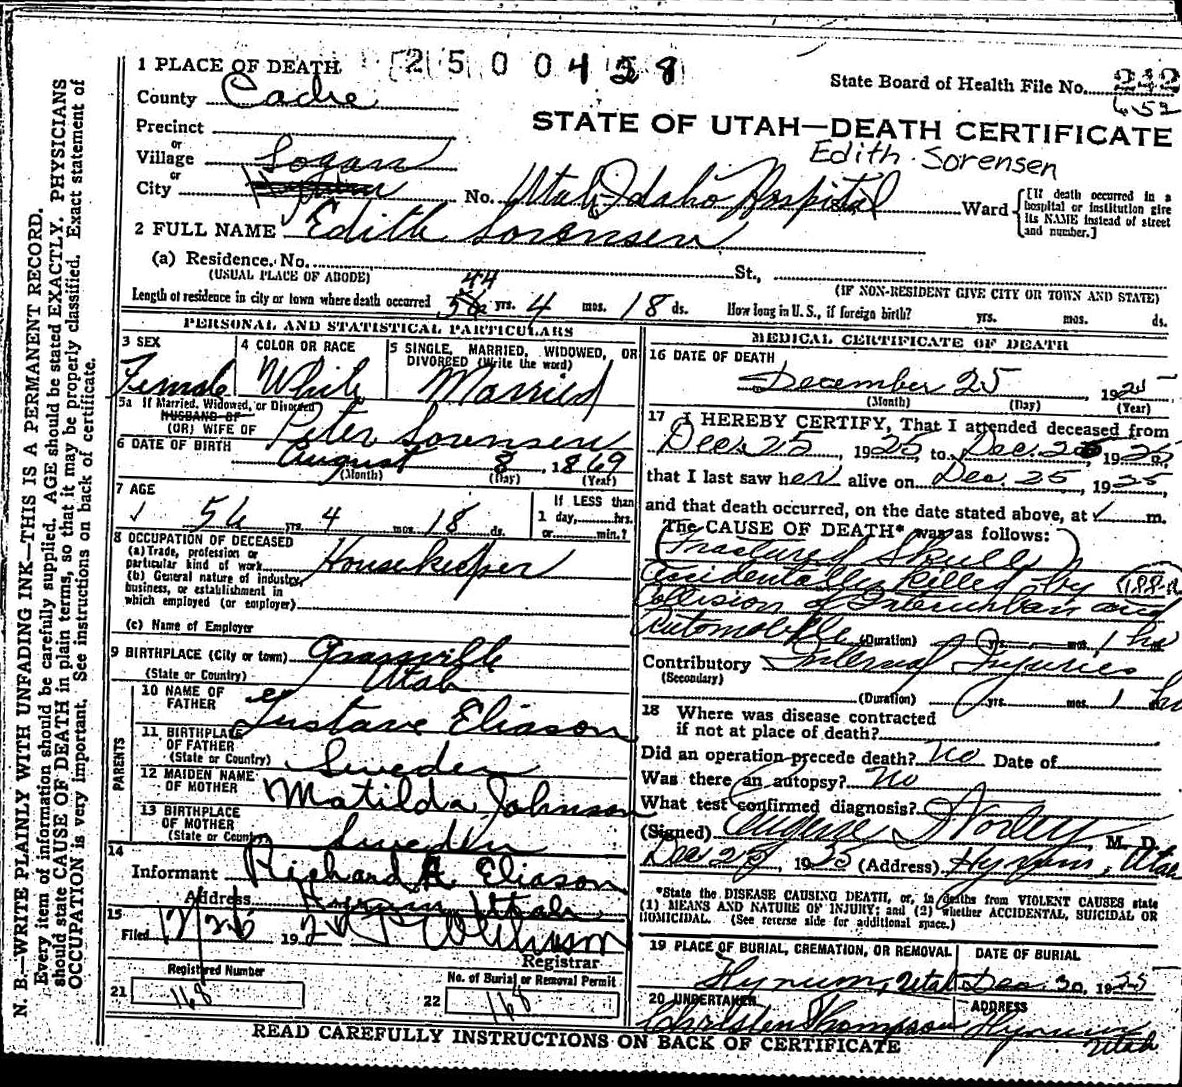 1 PLACE OF DEATH 2 5 0 0 4 2 8
State Board of Health File No. 242
652
County Cache
STATE OF UTAH—DEATH CERTIFICATE
Edith Sorensen
Precinct
or
Village Logan
or
City Hyrum No. Utah-Idaho Hospital Ward
[If death occurred in a
hospital or institution give
its NAME instead of street
and number.]
2 FULL NAME Edith Sorensen
(a) Residence, No. St.,
(USUAL PLACE OF ABODE)
(IF NON-RESIDENT GIVE CITY OR TOWN AND STATE)
44
Length of residence in city or town where death occurred 56 yrs. 4 mos. 18 ds. How long in U. S., if foreign birth? yrs. mos. ds.
PERSONAL AND STATISTICAL PARTICULARS
3 SEX
Female
4 COLOR OR RACE
White
5 SINGLE, MARRIED, WIDOWED, OR
DIVORCED (Write the word)
Married
5a If Married, Widowed, or Divorced
HUSBAND OF
(OR) WIFE OF Peter Sorensen
6 DATE OF BIRTH August 8, 1869
(Month) (Day) (Year)
7 AGE
56 yrs. 4 mos. 18 ds.
If LESS than
1 day, hrs.
or min.?
8 OCCUPATION OF DECEASED
(a) Trade, profession or
particular kind of work Housekeeper
(b) General nature of industry,
business, or establishment in
which employed (or employer)
(c) Name of Employer
9 BIRTHPLACE (City or town) Grassville
(State or Country) Utah
PARENTS
10 NAME OF
FATHER Gustave Eliason
11 BIRTHPLACE
OF FATHER
(State or Country) Sweden
12 MAIDEN NAME
OF MOTHER Matilda Johnson
13 BIRTHPLACE
OF MOTHER
(State or Country) Sweden
14
Informant Richard A. Eliason
Address Hyrum Utah
15
Filed 12/26 192
Registrar
Registered Number
21 168
No. of Burial or Removal Permit
22 168
MEDICAL CERTIFICATE OF DEATH
16 DATE OF DEATH
December 25 1925
(Month) (Day) (Year)
17 I HEREBY CERTIFY, That I attended deceased from
Dec. 25, 1925, to Dec. 25, 1925,
that I last saw her alive on Dec. 25, 1925,
and that death occurred, on the date stated above, at m.
The CAUSE OF DEATH* was as follows:
Fractured Skull
Accidentally killed by 188-a
Collision of Interurban and
Automobile (Duration) yrs. mos. 1 hr
Contributory Internal Injuries
(Secondary)
(Duration) yrs. mos. 1 hr
18 Where was disease contracted
if not at place of death?
Did an operation precede death? No Date of
Was there an autopsy? No
What test confirmed diagnosis?
(Signed) Eugene Worley, M. D.
Dec 25, 1925 (Address) Hyrum, Utah
*State the DISEASE CAUSING DEATH, or, in deaths from VIOLENT CAUSES state
(1) MEANS AND NATURE OF INJURY; and (2) whether ACCIDENTAL, SUICIDAL OR
HOMICIDAL. (See reverse side for additional space.)
19 PLACE OF BURIAL, CREMATION, OR REMOVAL
Hyrum, Utah
DATE OF BURIAL
Dec. 30, 1925
20 UNDERTAKER
Christen Thompson
ADDRESS
Hyrum
Utah
READ CAREFULLY INSTRUCTIONS ON BACK OF CERTIFICATE
N. B.—WRITE PLAINLY WITH UNFADING INK—THIS IS A PERMANENT RECORD.
Every item of information should be carefully supplied. AGE should be stated EXACTLY. PHYSICIANS
should state CAUSE OF DEATH in plain terms, so that it may be properly classified. Exact statement of
OCCUPATION is very important. See instructions on back of certificate.